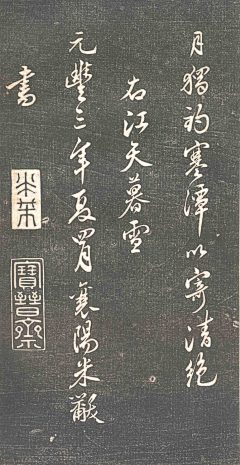 月獨釣寒潭以寄清絕
右江天暮雪
元豐三年夏四月襄陽米黻
書
米芾
寶晉齋